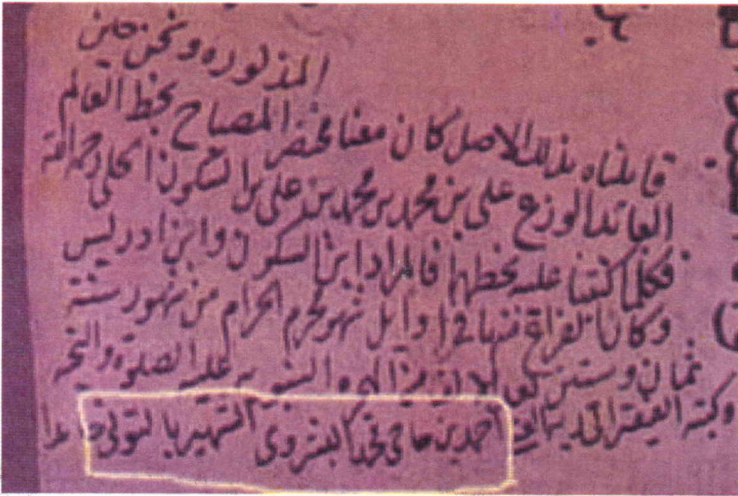 المذكوره ونحن حين
قابلناه بذلك الاصل كان معنا مختصر المصباح بخط العالم
العابد الورع علي بن محمد بن محمد بن علي بن السكون الحلي رحمه الله
فكلما كتبنا عليه بخطهما فالمراد ابن السكون وابن ادريس
وكان الفراغ منها في اوايل شهر محرم الحرام من شهور سنة
ثمان وستين بعد الالف من الهجرة النبويه عليه الصلوة والتحيه
وكتبه الفقير الى الله احمد بن حاجي محمد البشروي الشهير بالتوني حامدا